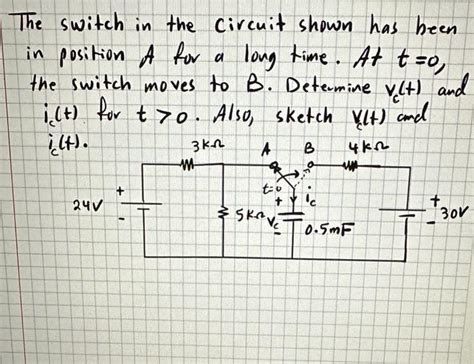 The switch in the circuit shown has been
in position A for a long time. At t=0,
the switch moves to B. Determine v_c(t) and
i_c(t) for t>0. Also, sketch v_c(t) and
i_c(t).
3kΩ A B 4kΩ
t=0 i_c
24V + - 5kΩ + v_c - 0.5mF + - 30V